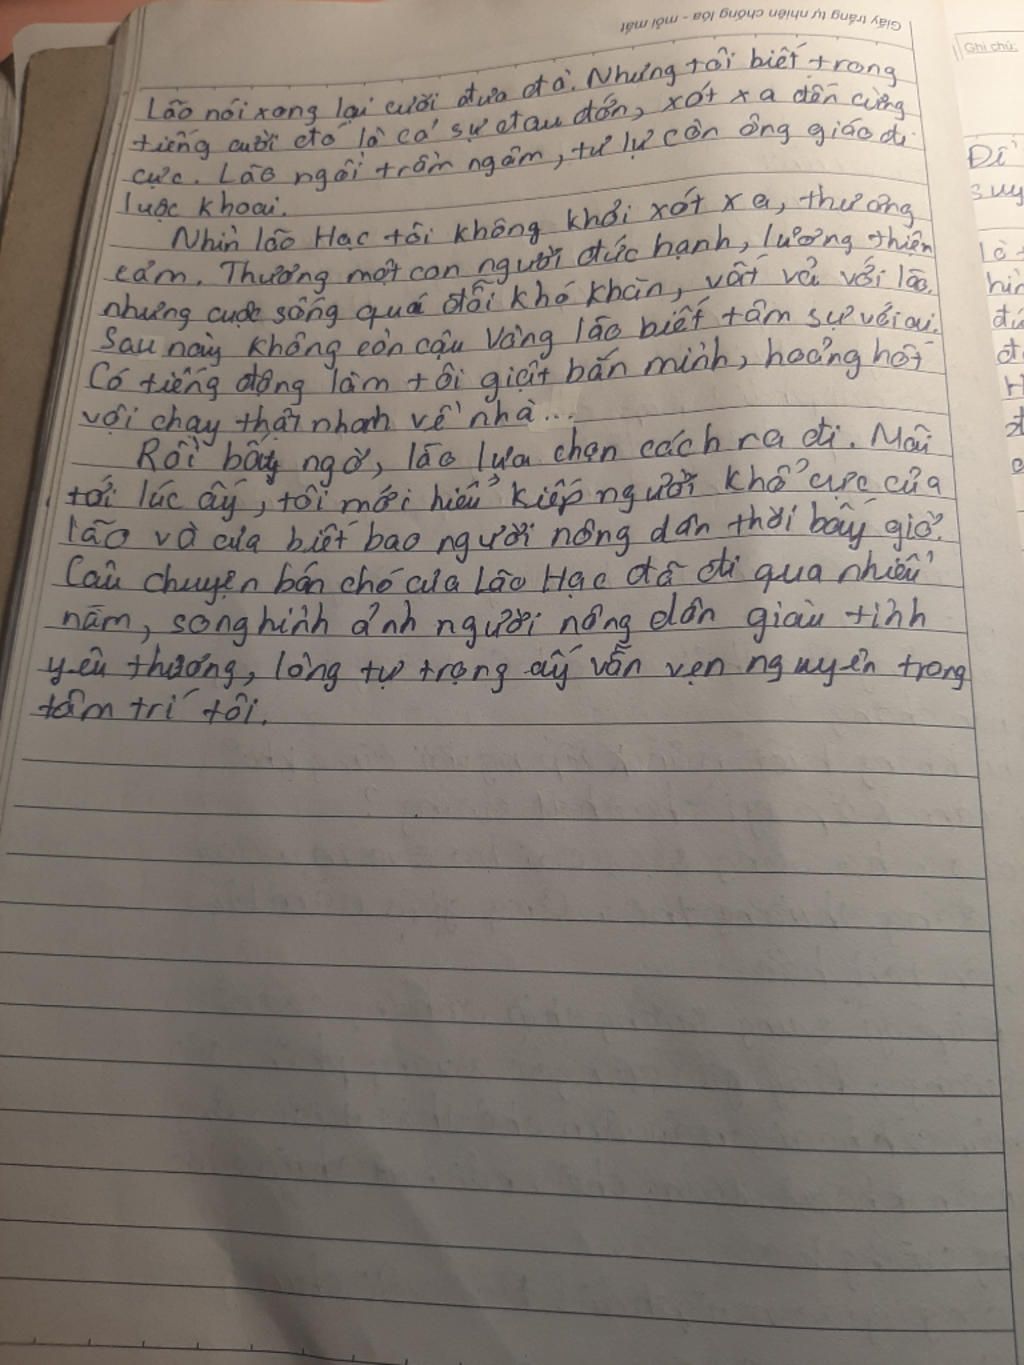 Giấy trắng tự nhiên chống lóa - mỏi mắt
Ghi chú:
Lão nói xong lại cười đưa đà. Nhưng tôi biết trong
tiếng cười đó là cả sự đau đớn, xót xa đến cùng
cực. Lão ngồi trầm ngâm, tư lự còn ông giáo đi
luộc khoai.
Nhìn lão Hạc tôi không khỏi xót xa, thương
cảm. Thương một con người đức hạnh, lương thiện
nhưng cuộc sống quá đỗi khó khăn, vất vả với lão.
Sau này không còn cậu Vàng lão biết tâm sự với ai.
Có tiếng động làm tôi giật bắn mình, hoảng hốt
vội chạy thật nhanh về nhà...
Rồi bất ngờ, lão lựa chọn cách ra đi. Mãi
tới lúc ấy, tôi mới hiểu kiếp người khổ cực của
lão và của biết bao người nông dân thời bấy giờ.
Câu chuyện bán chó của Lão Hạc đã đi qua nhiều
năm, song hình ảnh người nông dân giàu tình
yêu thương, lòng tự trọng ấy vẫn vẹn nguyên trong
tâm trí tôi.